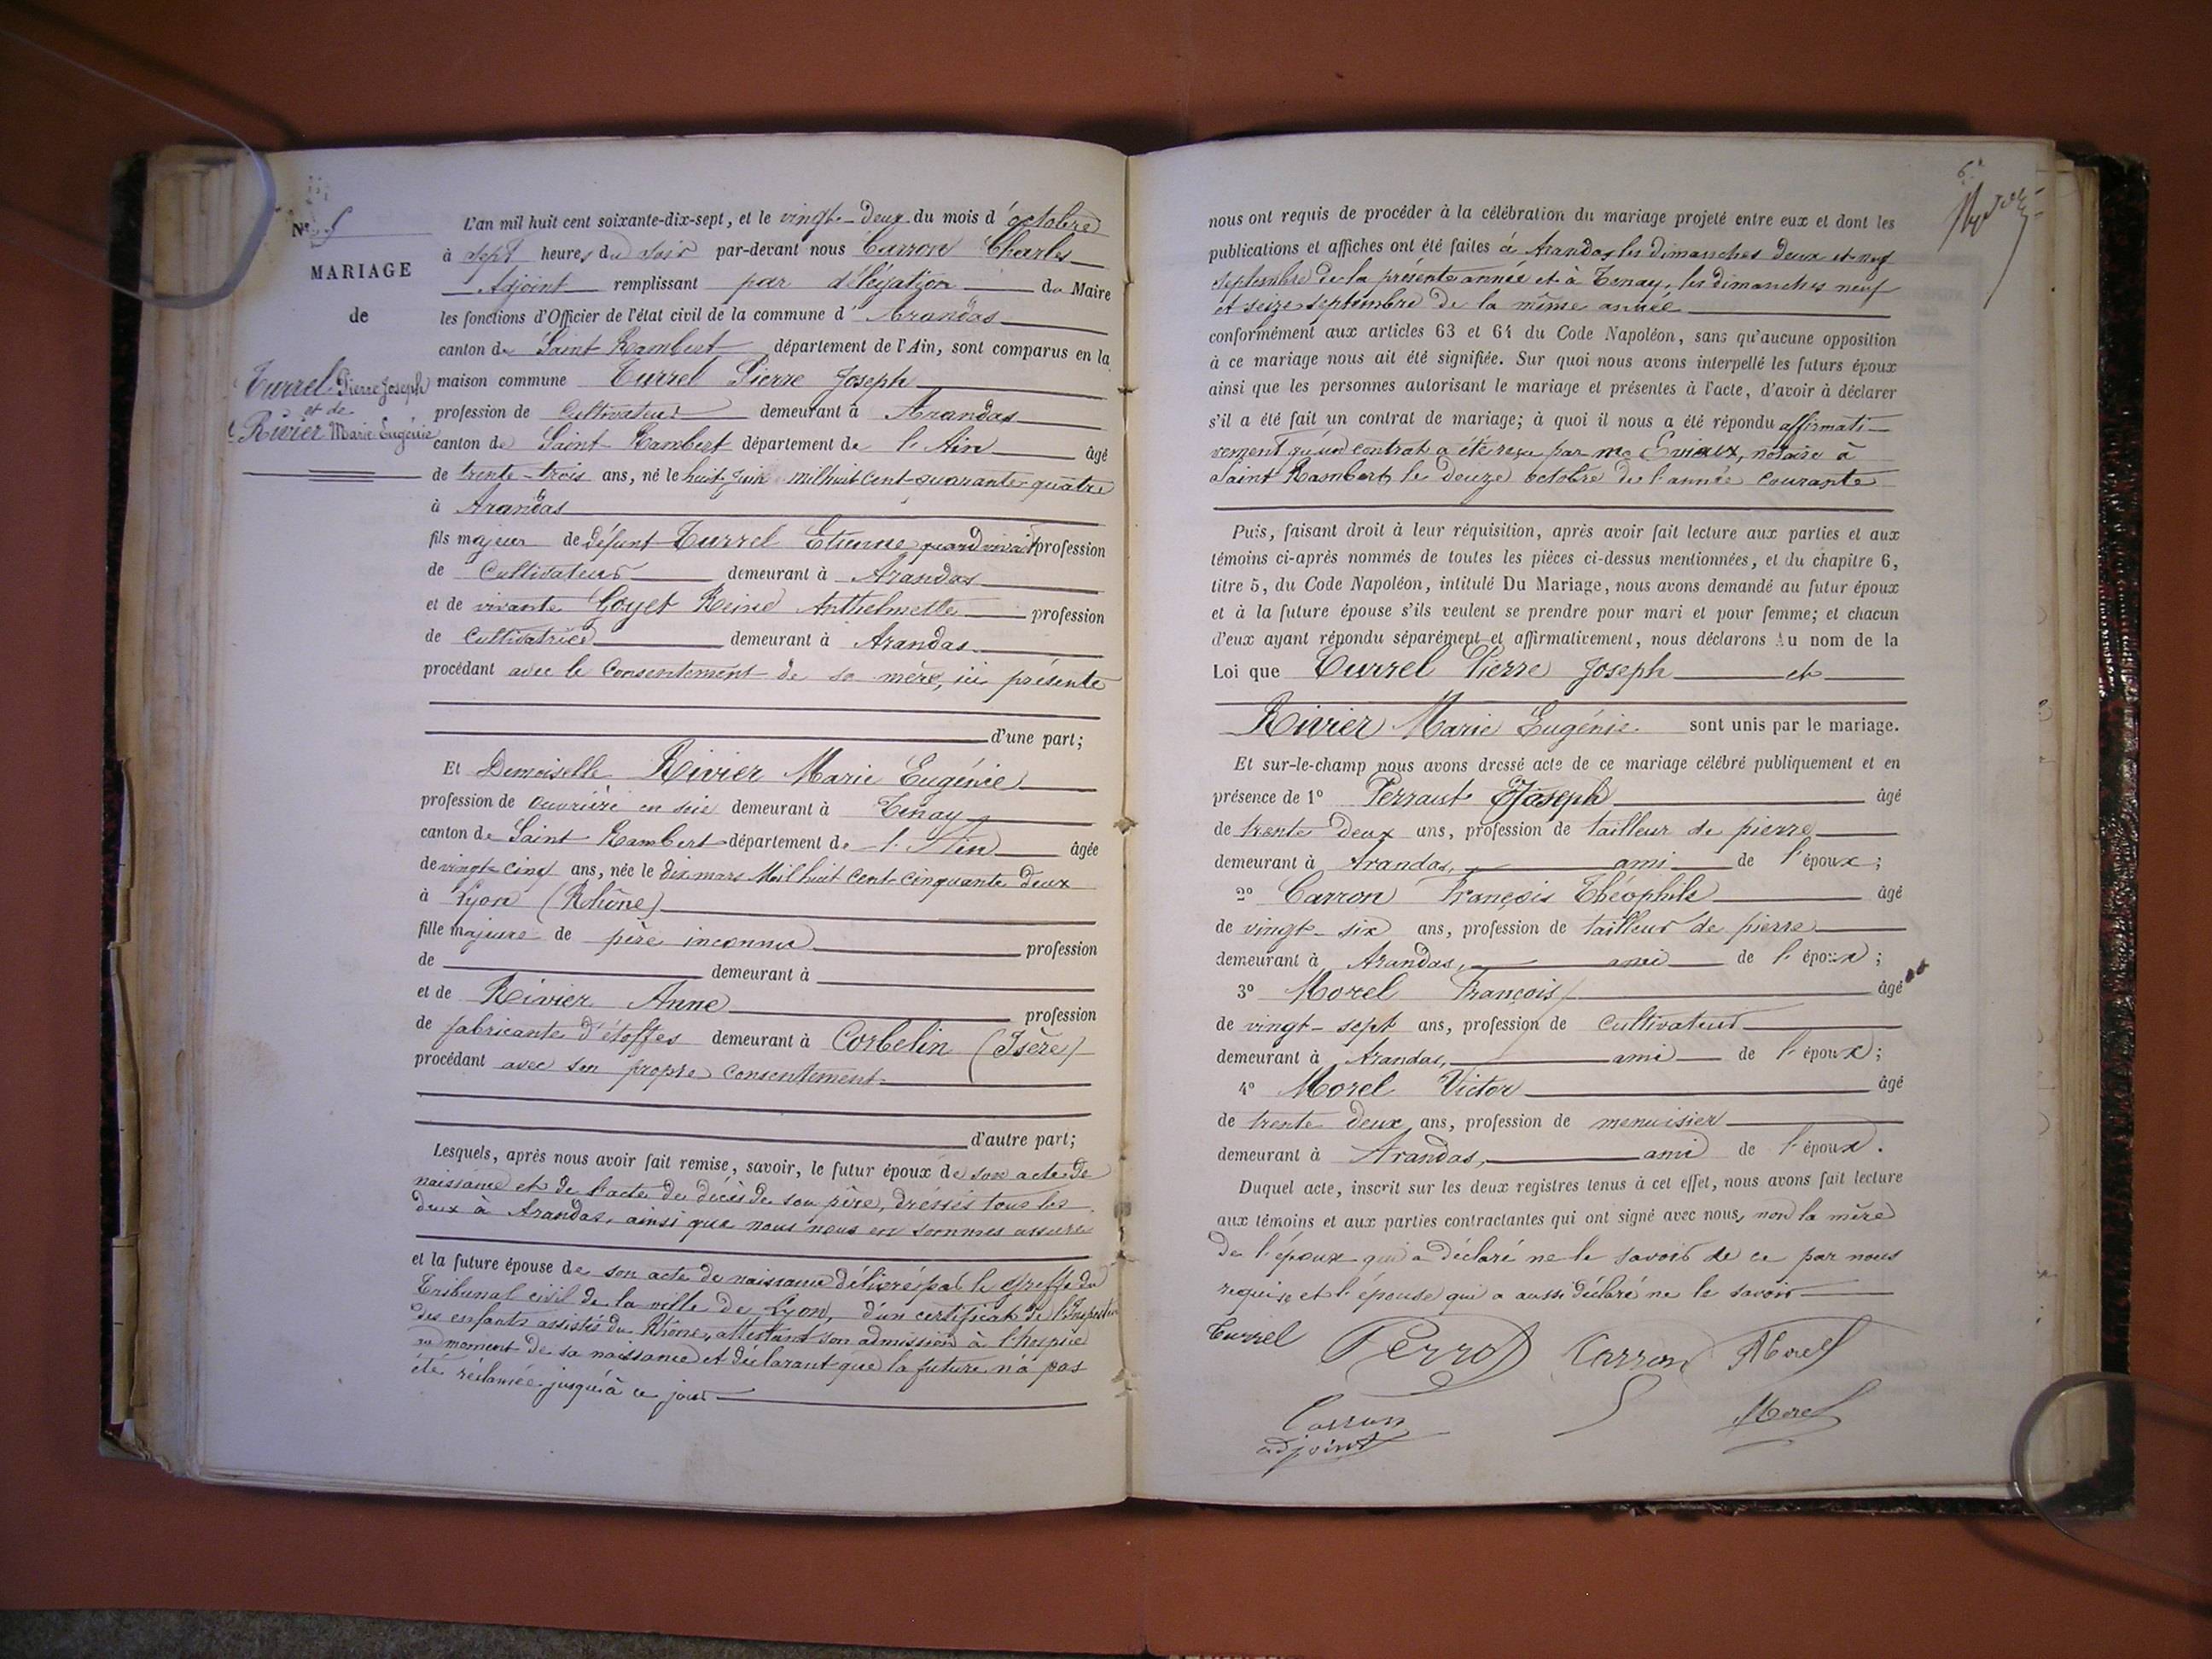 N° 5
MARIAGE
de
Turrel Pierre Joseph
et de
Rivier Marie Eugénie
L'an mil huit cent soixante-dix-sept, et le vingt-deux du mois d'octobre
à sept heures du soir par-devant nous Carron Charles
Adjoint remplissant par délégation du Maire
les fonctions d'Officier de l'état civil de la commune d'Arandas
canton de Saint Rambert département de l'Ain, sont comparus en la
maison commune Turrel Pierre Joseph
profession de Cultivateur demeurant à Arandas
canton de Saint-Rambert département de l'Ain âgé
de trente-trois ans, né le huit Juin mil huit cent quarante quatre
à Arandas
fils majeur de défunt Turrel Etienne quand vivait profession
de Cultivateur demeurant à Arandas
et de vivante Goyet Reine Anthelmette profession
de Cultivatrice demeurant à Arandas
procédant avec le Consentement de sa mère, ici présente
d'une part;
Et Demoiselle Rivier Marie Eugénie
profession de ouvrière en soie demeurant à Tenay
canton de Saint Rambert département de l'Ain âgée
de vingt-cinq ans, née le dix mars Mil huit cent cinquante deux
à Lyon (Rhône)
fille majeure de père inconnu profession
de demeurant à
et de Rivier Anne profession
de fabricante d'étoffes demeurant à Corbelin (Isère)
procédant avec son propre consentement
d'autre part;
Lesquels, après nous avoir fait remise, savoir, le futur époux de son acte de
naissance et de l'acte de décès de son père, dressés tous les
deux à Arandas, ainsi que nous nous en sommes assuré
et la future épouse de son acte de naissance délivré par le greffe du
Tribunal civil de la ville de Lyon, d'un certificat de l'Inspecteur
des enfants assistés du Rhône, attestant son admission à l'hospice
au moment de sa naissance et déclarant que la future n'a pas
été réclamée jusqu'à ce jour
6
nous ont requis de procéder à la célébration du mariage projeté entre eux et dont les
publications et affiches ont été faites à Arandas les dimanches deux et neuf
septembre de la présente année et à Tenay, les dimanches neuf
et seize septembre de la même année
conformément aux articles 63 et 64 du Code Napoléon, sans qu'aucune opposition
à ce mariage nous ait été signifiée. Sur quoi nous avons interpellé les futurs époux
ainsi que les personnes autorisant le mariage et présentes à l'acte, d'avoir à déclarer
s'il a été fait un contrat de mariage; à quoi il nous a été répondu affirmati-
vement qu'un contrat a été reçu par me notaire à
Saint Rambert, le douze octobre de l'année courante
Puis, faisant droit à leur réquisition, après avoir fait lecture aux parties et aux
témoins ci-après nommés de toutes les pièces ci-dessus mentionnées, et du chapitre 6,
titre 5, du Code Napoléon, intitulé Du Mariage, nous avons demandé au futur époux
et à la future épouse s'ils veulent se prendre pour mari et pour femme; et chacun
d'eux ayant répondu séparément et affirmativement, nous déclarons Au nom de la
Loi que Turrel Pierre Joseph et
Rivier Marie Eugénie sont unis par le mariage.
Et sur-le-champ nous avons dressé acte de ce mariage célébré publiquement et en
présence de 1° Perraut Joseph âgé
de trente deux ans, profession de tailleur de pierre
demeurant à Arandas, ami de l'époux;
2° Carron François Théophile âgé
de vingt-six ans, profession de tailleur de pierre
demeurant à Arandas, ami de l'époux;
3° Morel François âgé
de vingt-sept ans, profession de Cultivateur
demeurant à Arandas, ami de l'époux;
4° Morel Victor âgé
de trente deux ans, profession de menuisier
demeurant à Arandas, ami de l'époux.
Duquel acte, inscrit sur les deux registres tenus à cet effet, nous avons fait lecture
aux témoins et aux parties contractantes qui ont signé avec nous, non la mère
de l'époux qui a déclaré ne le savoir de ce par nous
requise et l'épouse qui a aussi déclaré ne le savoir
Turrel Perrot Carron Morel
Carron Morel
adjoint